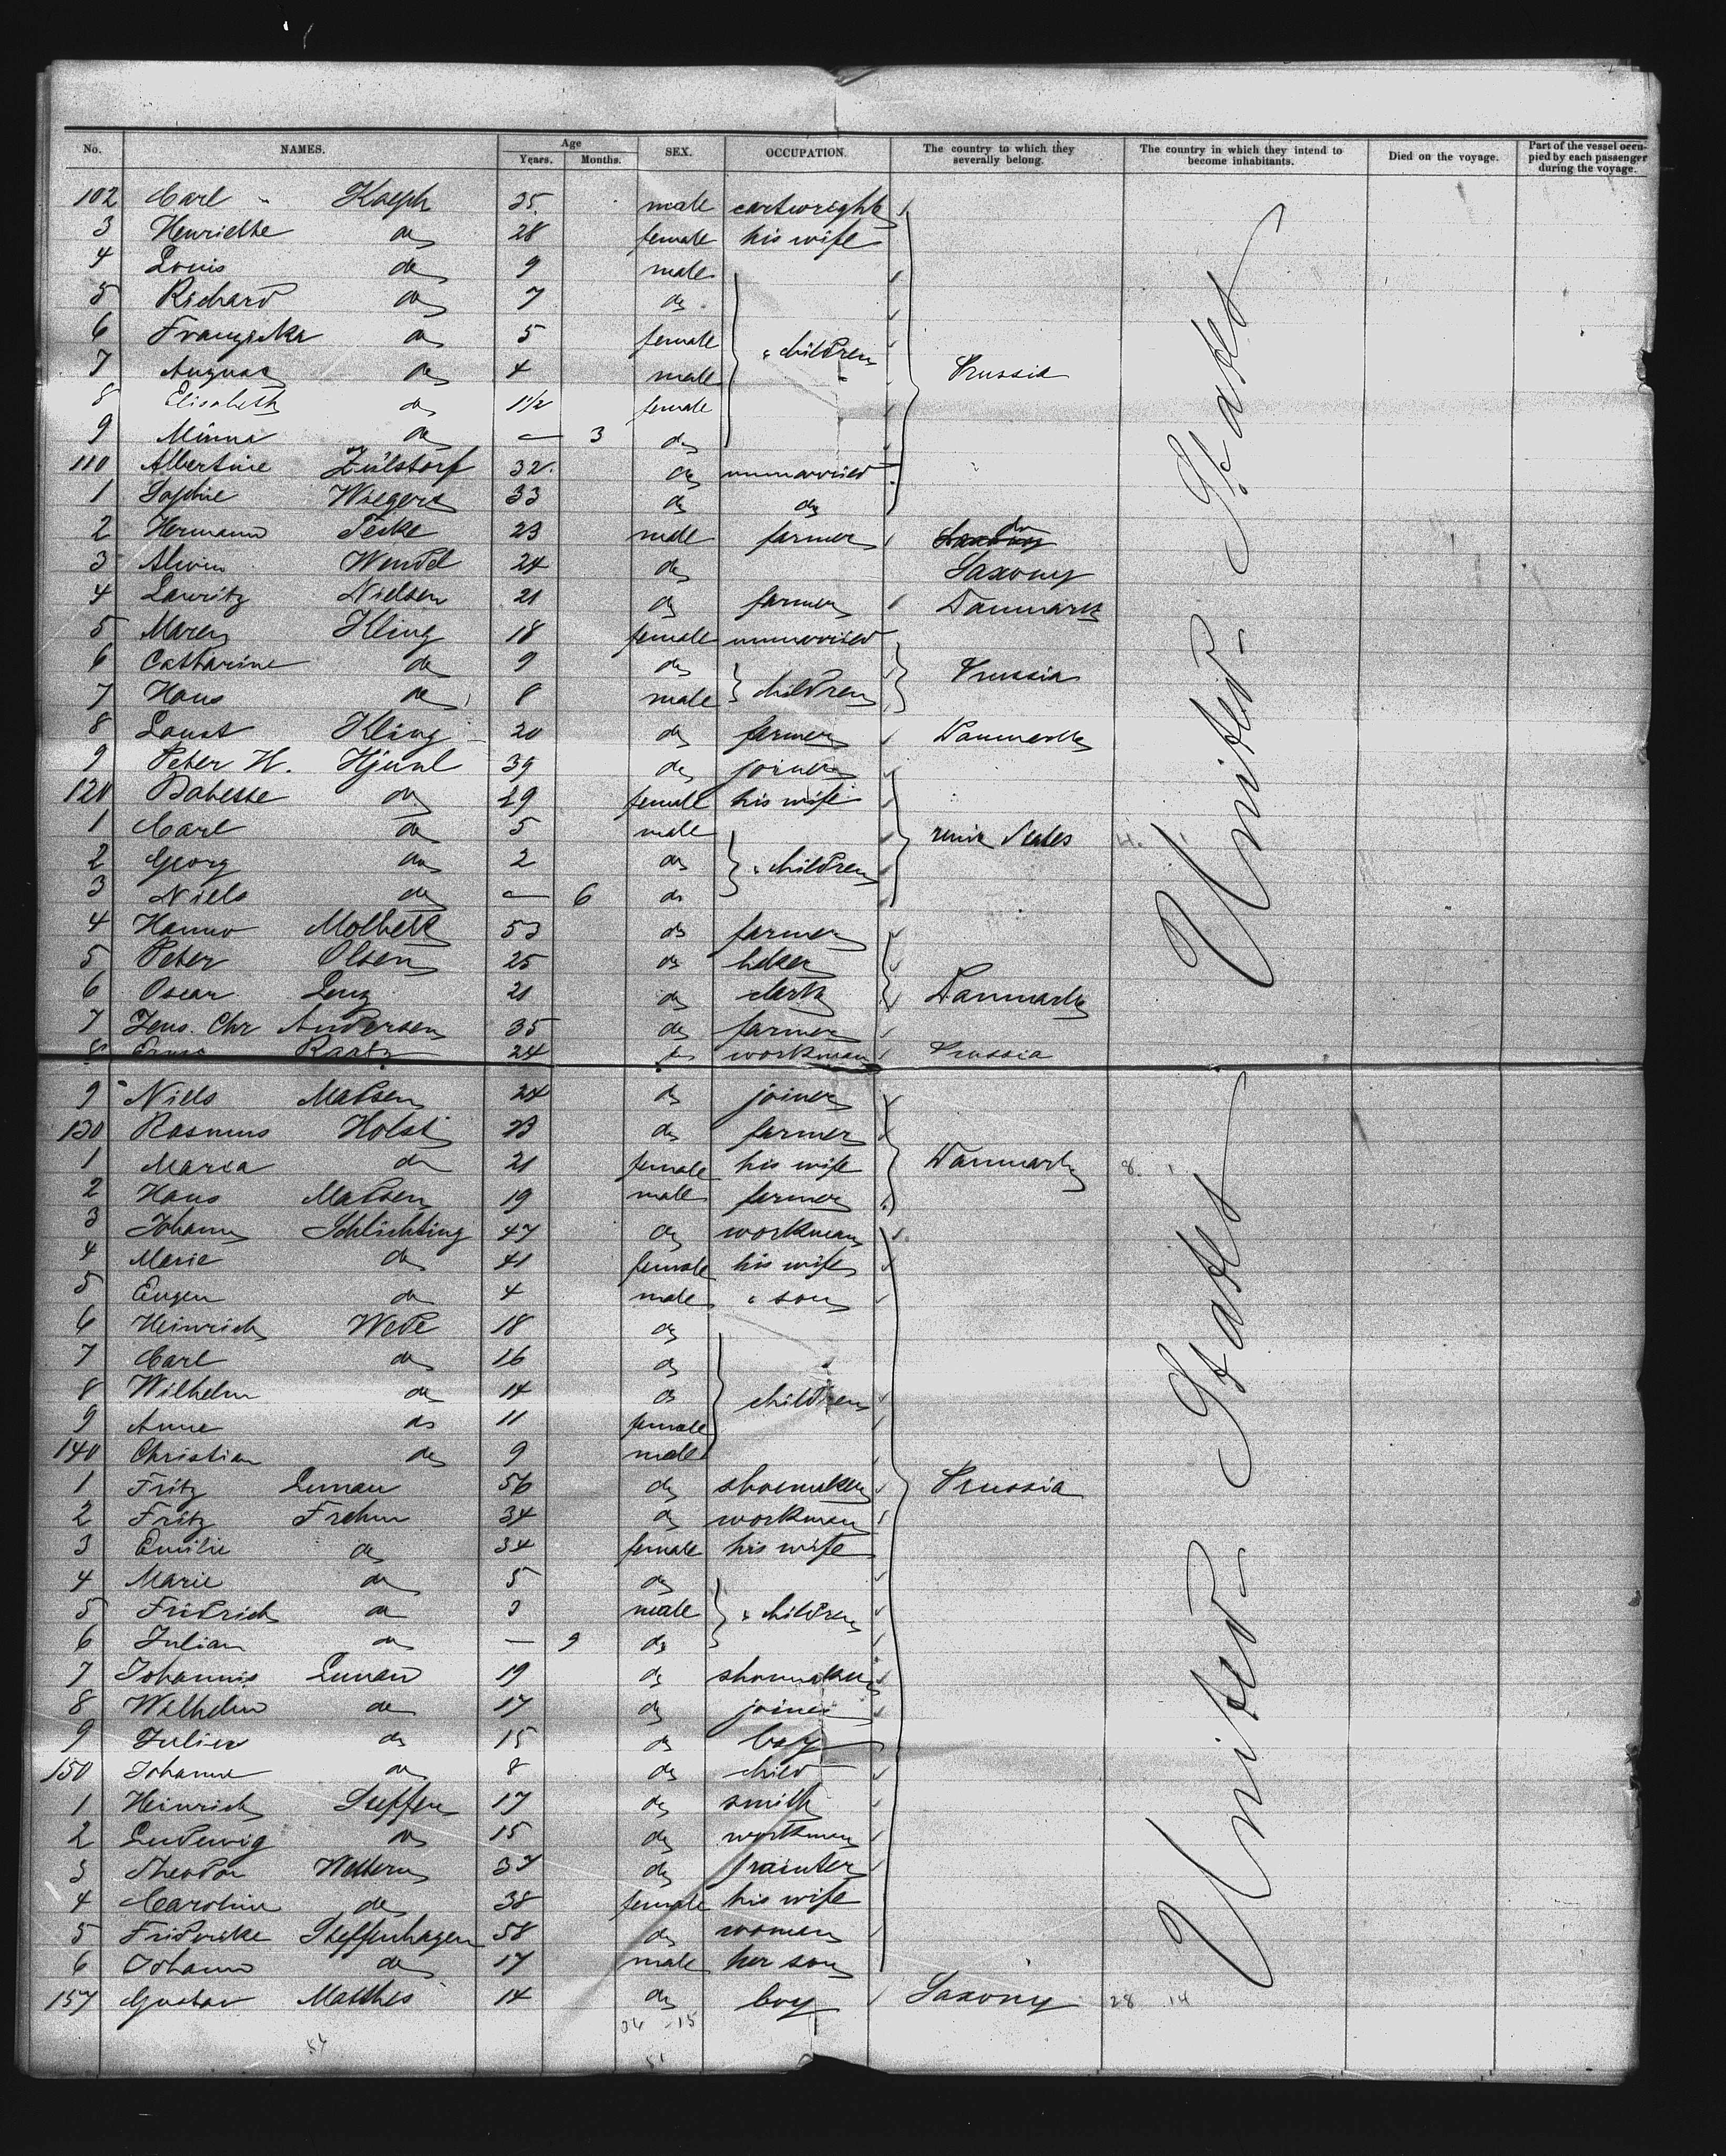 No. NAMES. Age Years. Months. SEX. OCCUPATION. The country to which they severally belong. The country in which they intend to become inhabitants. Died on the voyage. Part of the vessel occupied by each passenger during the voyage.
102 Carl 35 male cartwright
3 Henriette do 28 female his wife
4 Louis do 9 male
5 Richard do 7 do
6 Franziska do 5 female " children
7 August do 4 male Prussia
8 Elisabeth do 1 1/2 female
9 Minna do — 3 do
110 Albertine Zülstorf 32 do unmarried
1 Sophie Wiegers 33 do do
2 Hermann Tecke 23 male farmer do
3 Alwin Wendel 24 do Saxony
4 Lauritz Nielsen 21 do farmer Danmark
5 Maren Kling 18 female unmarried
6 Catharine do 9 do Prussia
7 Hans do 8 male children
8 Laust Kling 20 do farmer Danmark
9 Peter H. 39 do joiner
120 Babette do 29 female his wife
1 Carl do 5 male States
2 Georg do 2 do " children
3 Niels do — 6 do
4 Hanno Molbeck 53 do farmer
5 Peter Olsen 25 do
6 Oscar Lenz 21 do clerk Danmark
7 Jens. Chr Andersen 35 do farmer
8 Ernst 24 do workman Prussia
United States
9 Niels Madsen 24 do joiner
130 Rasmus Holst 23 do farmer
1 Maria do 21 female his wife Danmark 8.
2 Hans Madsen 19 male farmer
3 Johann Schlichting 47 do workman
4 Marie do 41 female his wife
5 Eugen do 4 male " son
6 Heinrich Wede 18 do
7 Carl do 16 do
8 Wilhelm do 14 do children
9 Anne do 11 female
140 Christian do 9 male
1 Fritz Lunau 56 do shoemaker Prussia
2 Fritz Frehm 34 do workman
3 Emilie do 34 female his wife
4 Marie do 5 do
5 Fridrich do 3 male " children
6 Julian do — 9 do
7 Johannis Lunau 19 do shoemaker
8 Wilhelm do 17 do joiner
9 Julius do 15 do boy
150 Johanne do 8 do child
1 Heinrich Steffen 17 do smith
2 Ludewig do 15 do workman
3 Theodor 37 do painter
4 Caroline do 38 female his wife
5 Fridrike Steffenhagen 58 do woman
6 Johann do 17 male her son
157 Gustav Matthes 14 do boy Saxony 28 14
United States